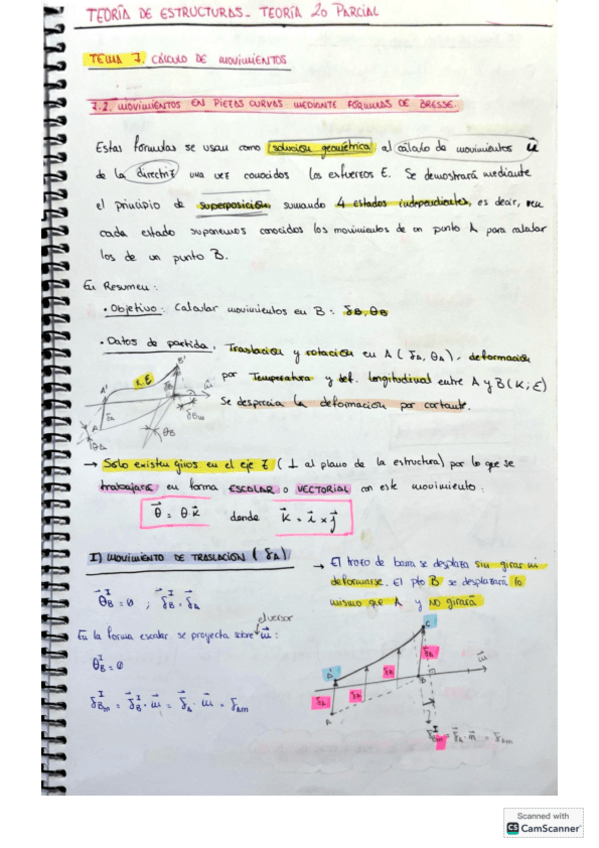 TEORÍA DE ESTRUCTURAS - TEORÍA 2o PARCIAL
TEMA 7. CÁLCULO DE MOVIMIENTOS
7.2. MOVIMIENTOS EN PIEZAS CURVAS MEDIANTE FÓRMULAS DE BRESSE.
Estas fórmulas se usan como solución geométrica al cálculo de movimientos u
de la directriz una vez conocidos los esfuerzos E. Se demostrará mediante
el principio de superposición sumando 4 estados independientes, es decir, en
cada estado suponemos conocidos los movimientos de un punto A para calcular
los de un punto B.
En Resumen:
• Objetivo: Calcular movimientos en B: δB, θB
• Datos de partida. Traslación y rotación en A (δA, θA). deformación
por Temperatura y def. longitudinal entre A y B (K; ε)
Se desprecia la deformación por cortante.
→ Solo existen giros en el eje Z (⊥ al plano de la estructura) por lo que se
trabajará en forma ESCOLAR o VECTORIAL con este movimiento:
θ⃗ = θ k⃗ donde k⃗ = i⃗ × j⃗
I) MOVIMIENTO DE TRASLACIÓN (δA)
→ El trozo de barra se desplaza sin girar ni
deformarse. El pto B se desplazará lo
mismo que A y NO girará
θ⃗B^I = 0 ; δ⃗B^I = δ⃗A
el versor
En la forma escalar se proyecta sobre m⃗:
θB^I = 0
δBm^I = δ⃗B^I · m⃗ = δ⃗A · m⃗ = δAm
C
D
δA
δA
δA
δA
A
B
m⃗
δBm^I = δ⃗A · m⃗ = δAm
Scanned with
CS CamScanner